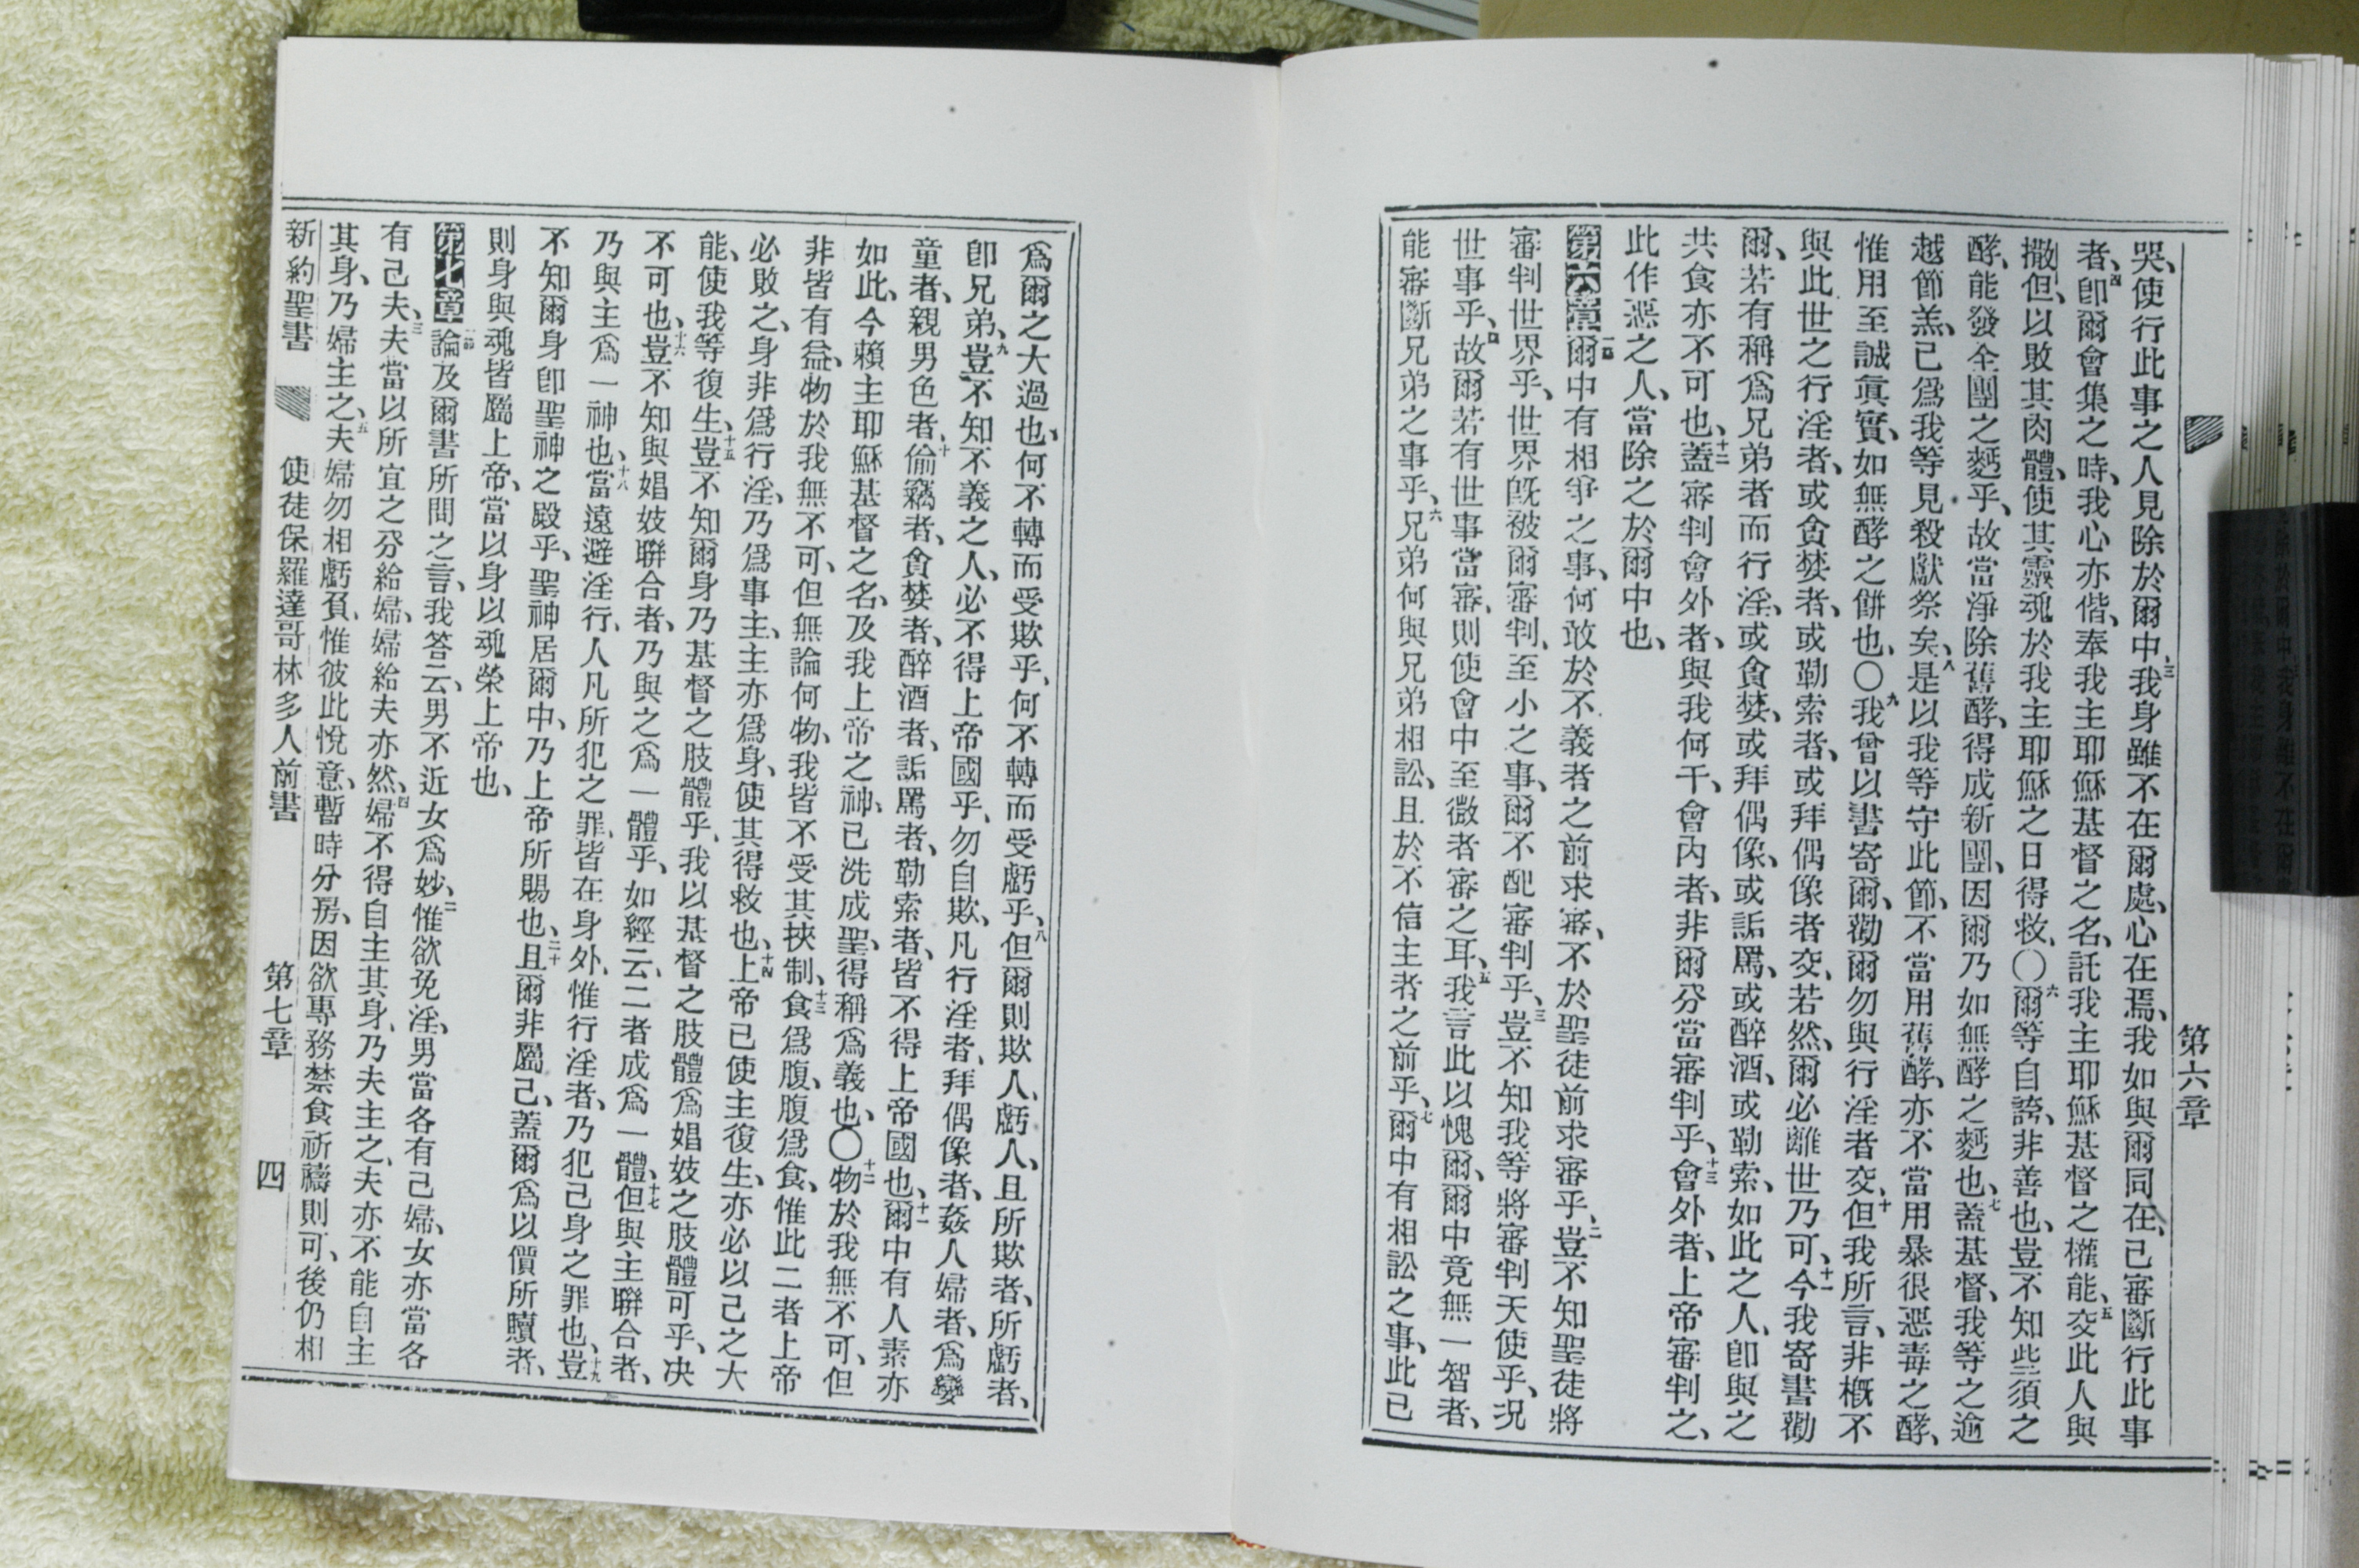 第六章
哭、使行此事之人見除於爾中、三我身雖不在爾處、心在焉、我如與爾同在、已審斷行此事
者、四卽爾會集之時、我心亦偕、奉我主耶穌基督之名、託我主耶穌基督之權能、五交此人與
撒但、以敗其肉體、使其靈魂於我主耶穌之日得救、〇六爾等自誇、非善也、豈不知些須之
酵、能發全團之麪乎、故當淨除舊酵、得成新團、因爾乃如無酵之麪也、七蓋基督、我等之逾
越節羔、已爲我等見殺獻祭矣、八是以我等守此節、不當用舊酵、亦不當用暴很惡毒之酵、
惟用至誠眞實、如無酵之餅也、〇九我曾以書寄爾、勸爾勿與行淫者交、十但我所言、非槪不
與此世之行淫者、或貪婪者、或勒索者、或拜偶像者交、若然、爾必離世乃可、十一今我寄書勸
爾、若有稱爲兄弟者而行淫、或貪婪、或拜偶像、或詬罵、或醉酒、或勒索、如此之人、卽與之
共食亦不可也、十二蓋審判會外者、與我何干、會內者、非爾分當審判乎、十三會外者、上帝審判之、
此作惡之人、當除之於爾中也、
第六章一節爾中有相爭之事、何敢於不義者之前求審、不於聖徒前求審乎、二豈不知聖徒將
審判世界乎、世界旣被爾審判、至小之事、爾不配審判乎、三豈不知我等將審判天使乎、況
世事乎、四故爾若有世事當審、則使會中至微者審之耳、五我言此以愧爾、爾中竟無一智者、
能審斷兄弟之事乎、六兄弟何與兄弟相訟、且於不信主者之前乎、七爾中有相訟之事、此已
爲爾之大過也、何不轉而受欺乎、何不轉而受虧乎、八但爾則欺人、虧人、且所欺者、所虧者、
卽兄弟、九豈不知不義之人、必不得上帝國乎、勿自欺、凡行淫者、拜偶像者、姦人婦者、爲孌
童者、親男色者、十偷竊者、貪婪者、醉酒者、詬罵者、勒索者、皆不得上帝國也、十一爾中有人素亦
如此、今賴主耶穌基督之名、及我上帝之神、已洗成聖、得稱爲義也、〇十二物於我無不可、但
非皆有益、物於我無不可、但無論何物、我皆不受其挾制、十三食爲腹、腹爲食、惟此二者上帝
必敗之、身非爲行淫、乃爲事主、主亦爲身、使其得救也、十四上帝已使主復生、亦必以己之大
能、使我等復生、十五豈不知爾身乃基督之肢體乎、我以基督之肢體爲娼妓之肢體可乎、決
不可也、十六豈不知與娼妓聯合者、乃與之爲一體乎、如經云、二者成爲一體、十七但與主聯合者、
乃與主爲一神也、十八當遠避淫行、人凡所犯之罪、皆在身外、惟行淫者、乃犯己身之罪也、十九豈
不知爾身卽聖神之殿乎、聖神居爾中、乃上帝所賜也、二十且爾非屬己、蓋爾爲以價所贖者、
則身與魂皆屬上帝、當以身以魂榮上帝也、
第七章一節論及爾書所問之言、我答云、男不近女爲妙、二惟欲免淫、男當各有己婦、女亦當各
有己夫、三夫當以所宜之分給婦、婦給夫亦然、四婦不得自主其身、乃夫主之、夫亦不能自主
其身、乃婦主之、五夫婦勿相虧負、惟彼此悅意、暫時分房、因欲專務禁食祈禱則可、後仍相
新約聖書 使徒保羅達哥林多人前書 第七章 四